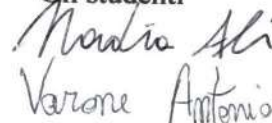 Gli studenti
Nadia Ali
Varone Antonio